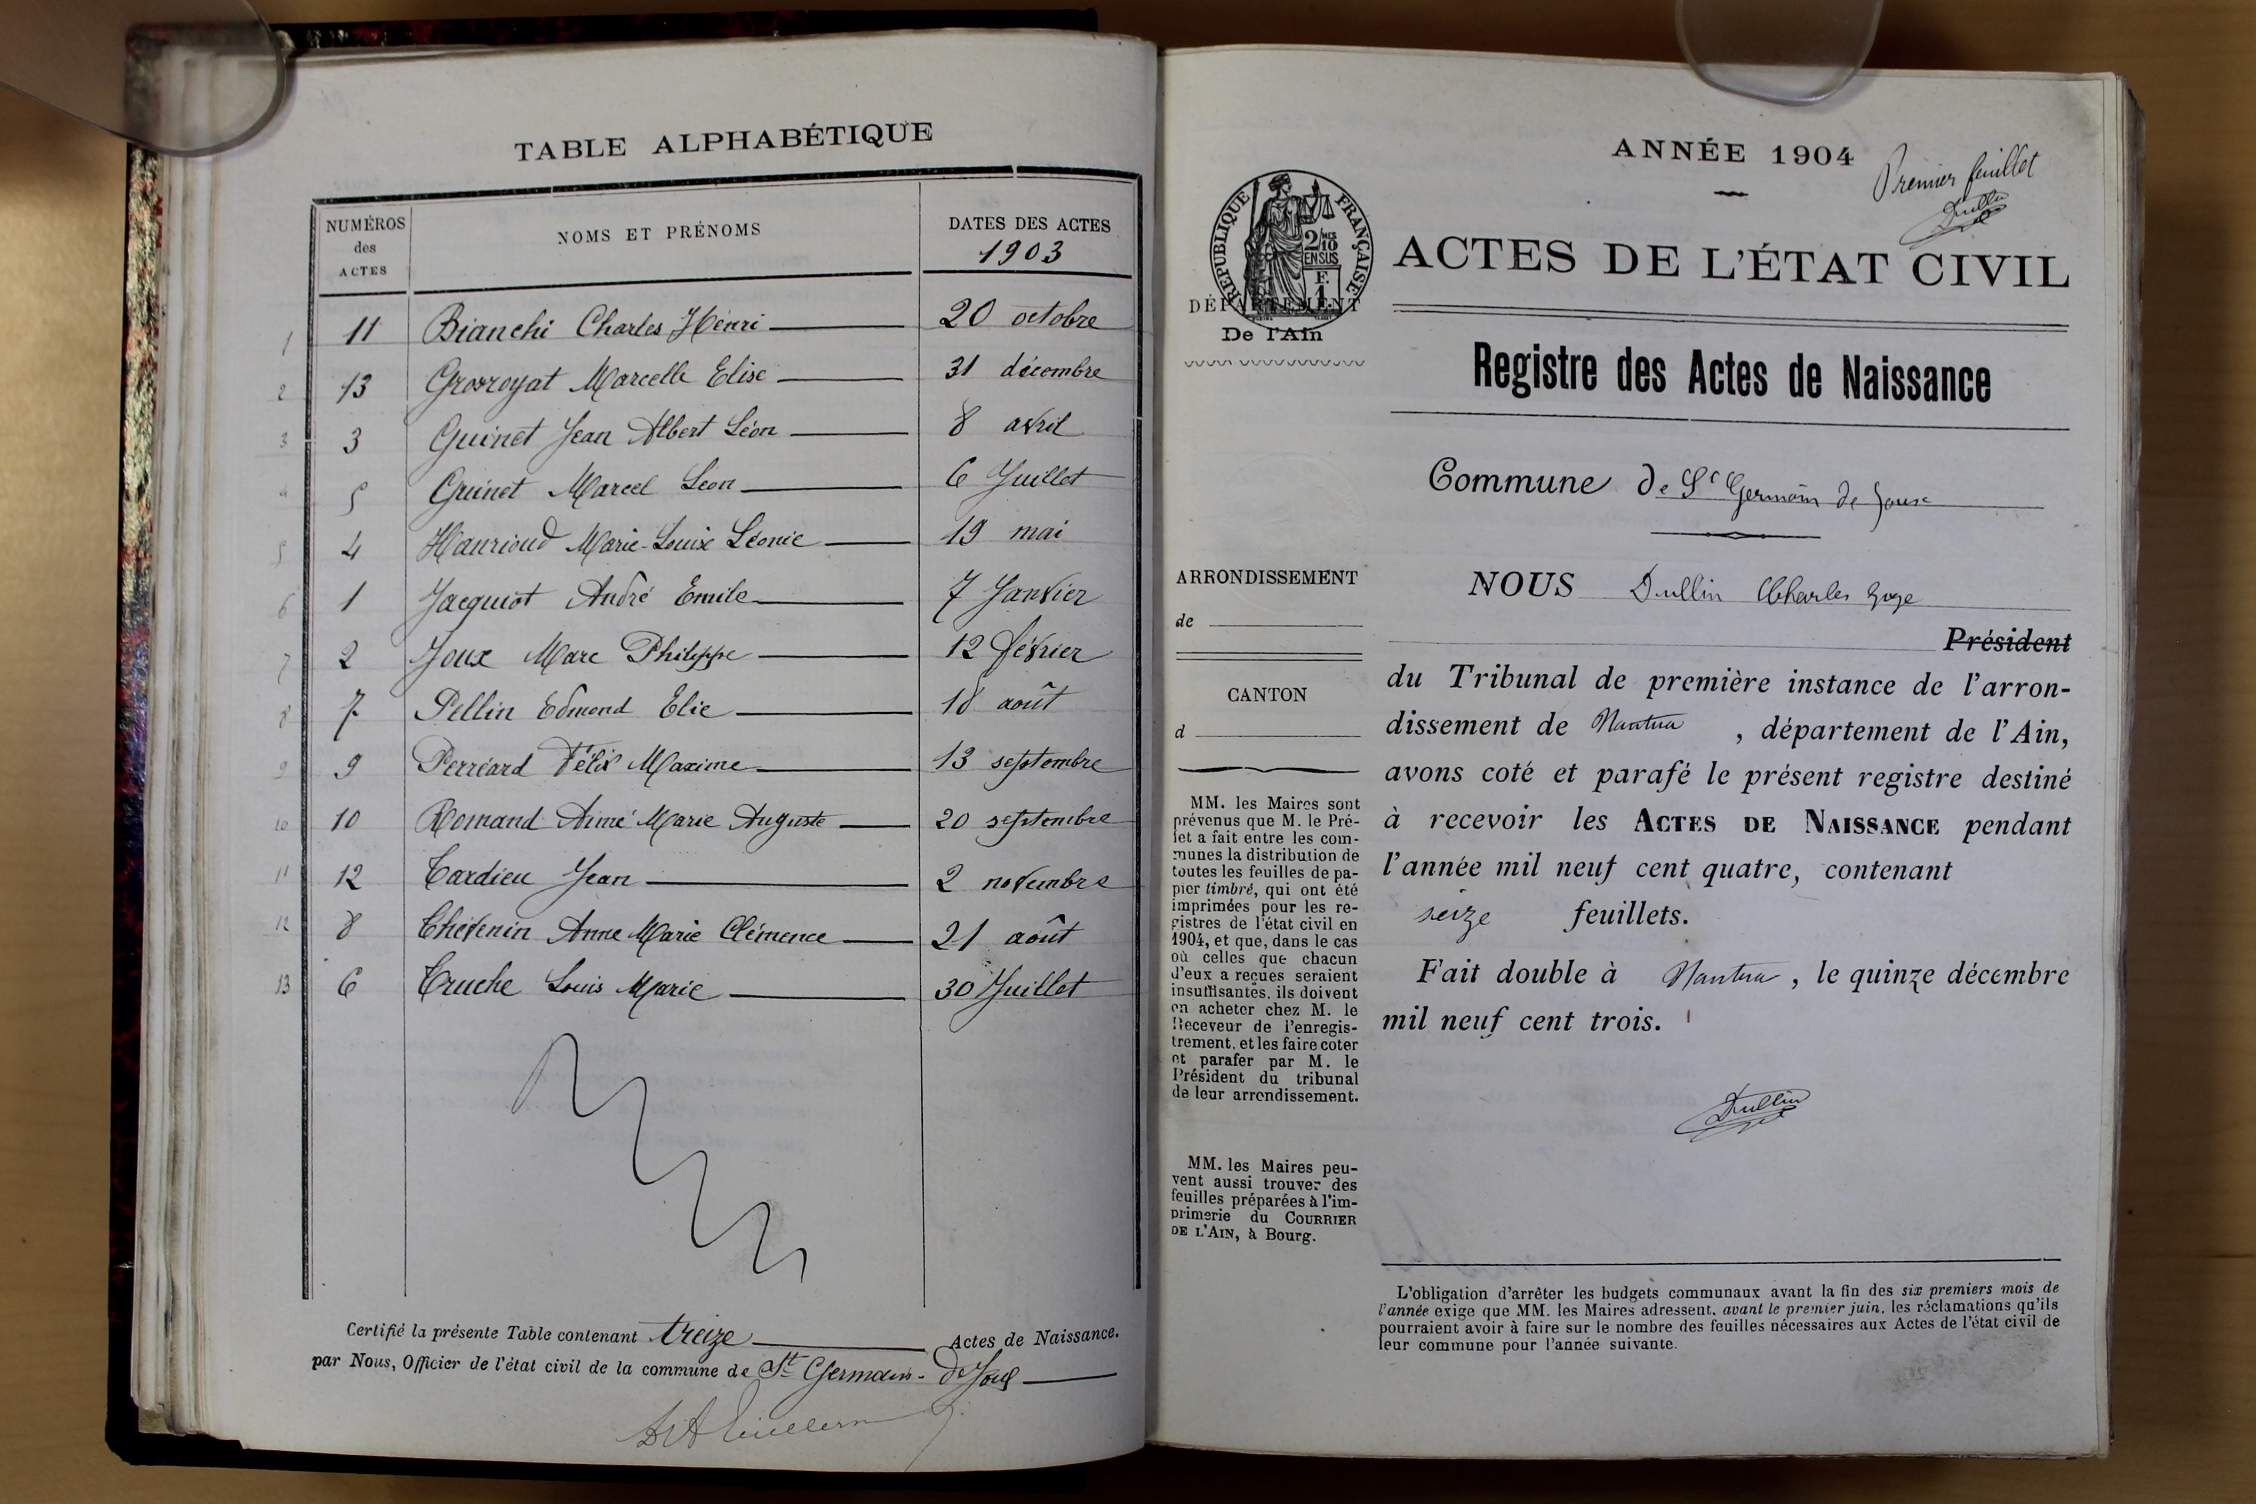 TABLE ALPHABÉTIQUE
NUMÉROS des ACTES
NOMS ET PRÉNOMS
DATES DES ACTES
1903
1 11 Bianchi Charles Hénri 20 octobre
2 13 Grosroyat Marcelle Elise 31 décembre
3 3 Guinet Jean Albert Léon 8 avril
4 5 Guinet Marcel Léon 6 Juillet
5 4 Hanrioud Marie-Louise Léonie 19 mai
6 1 Jacquiot André Emile 7 Janvier
7 2 Joux Marc Philippe 12 février
8 7 Pellin Edmond Elie 18 août
9 9 Perréard Félix Maxime 13 septembre
10 10 Romand Aimé Marie Auguste 20 septembre
11 12 Tardieu Jean 2 novembre
12 8 Thévenin Anne Marie Clémence 21 août
13 6 Truche Louis Marie 30 Juillet
Certifié la présente Table contenant treize Actes de Naissance.
par Nous, Officier de l'état civil de la commune de St Germain-de Joux
ANNÉE 1904
Premier feuillet
Dullin
RÉPUBLIQUE FRANÇAISE
2/10 MES
EN SUS
F.
1.
ACTES DE L'ÉTAT CIVIL
DÉPARTEMENT
De l'Ain
Registre des Actes de Naissance
Commune de St Germain de Joux
ARRONDISSEMENT
de
CANTON
d
MM. les Maires sont
prévenus que M. le Pré-
fet a fait entre les com-
munes la distribution de
toutes les feuilles de pa-
pier timbré, qui ont été
imprimées pour les re-
gistres de l'état civil en
1904, et que, dans le cas
où celles que chacun
d'eux a reçues seraient
insuffisantes, ils doivent
en acheter chez M. le
Receveur de l'enregis-
trement, et les faire coter
et parafer par M. le
Président du tribunal
de leur arrondissement.
MM. les Maires peu-
vent aussi trouver des
feuilles préparées à l'im-
primerie du COURRIER
DE L'AIN, à Bourg.
NOUS Dullin Charles Juge
Président
du Tribunal de première instance de l'arron-
dissement de Nantua, département de l'Ain,
avons coté et parafé le présent registre destiné
à recevoir les ACTES DE NAISSANCE pendant
l'année mil neuf cent quatre, contenant
seize feuillets.
Fait double à Nantua, le quinze décembre
mil neuf cent trois.
Dullin
L'obligation d'arrêter les budgets communaux avant la fin des six premiers mois de
l'année exige que MM. les Maires adressent, avant le premier juin, les réclamations qu'ils
pourraient avoir à faire sur le nombre des feuilles nécessaires aux Actes de l'état civil de
leur commune pour l'année suivante.